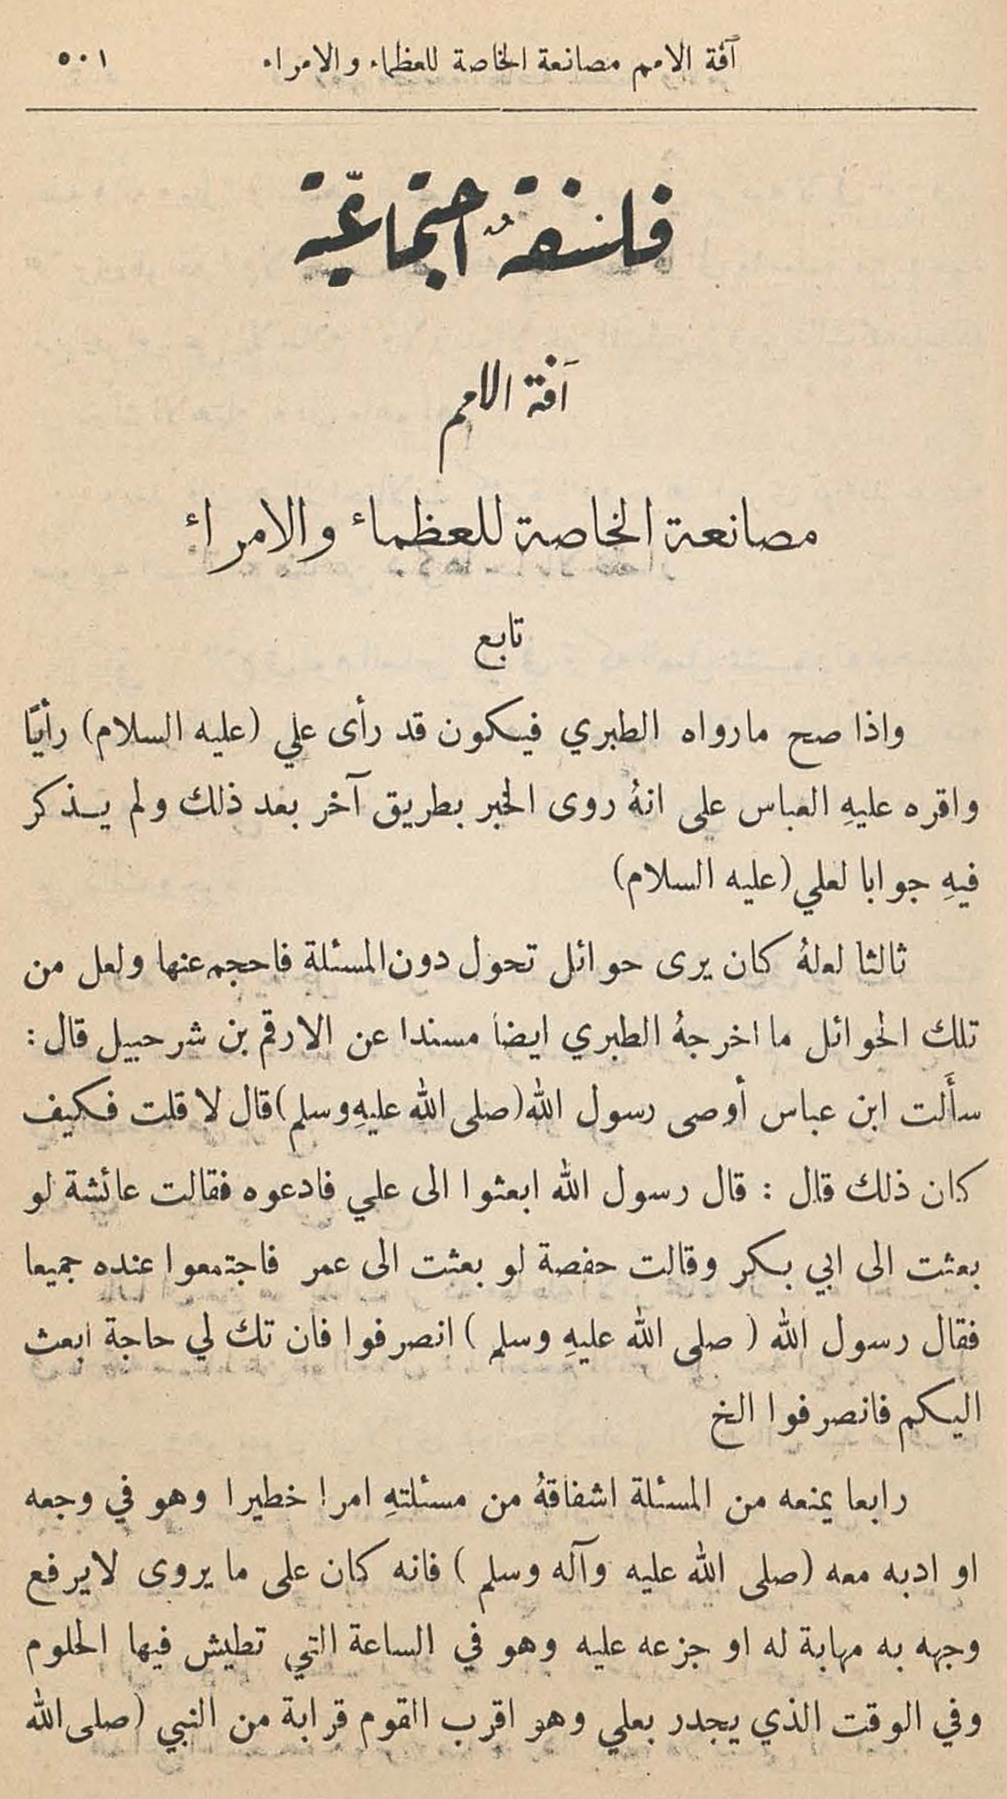 آفة الامم مصانعة الخاصة للعظماء والامراء ٥٠١
فلسفة اجتماعيّة
آفة الامم
مصانعة الخاصة للعظماء والامراء
تابع
واذا صح مارواه الطبري فيكون قد رأى علي (عليه السلام) رأيًا
واقره عليهِ العباس على انهُ روى الخبر بطريق آخر بعد ذلك ولم يذكر
فيهِ جوابا لعلي (عليه السلام)
ثالثا لعلهُ كان يرى حوائل تحول دون المسئلة فاحجم عنها ولعل من
تلك الحوائل ما اخرجهُ الطبري ايضا مسندا عن الارقم بن شرحبيل قال :
سأَلت ابن عباس أوصى رسول الله (صلى الله عليهِ وسلم) قال لا قلت فكيف
كان ذلك قال : قال رسول الله ابعثوا الى علي فادعوه فقالت عائشة لو
بعثت الى ابي بكر وقالت حفصة لو بعثت الى عمر فاجتمعوا عنده جميعا
فقال رسول الله ( صلى الله عليهِ وسلم ) انصرفوا فان تك لي حاجة ابعث
اليكم فانصرفوا الخ
رابعا يمنعه من المسئلة اشفاقهُ من مسئلتهِ امرا خطيرا وهو في وجعه
او ادبه معه (صلى الله عليه وآله وسلم ) فانه كان على ما يروى لايرفع
وجهه به مهابة له او جزعه عليه وهو في الساعة التي تطيش فيها الحلوم
وفي الوقت الذي يجدر بعلي وهو اقرب القوم قرابة من النبي (صلى الله